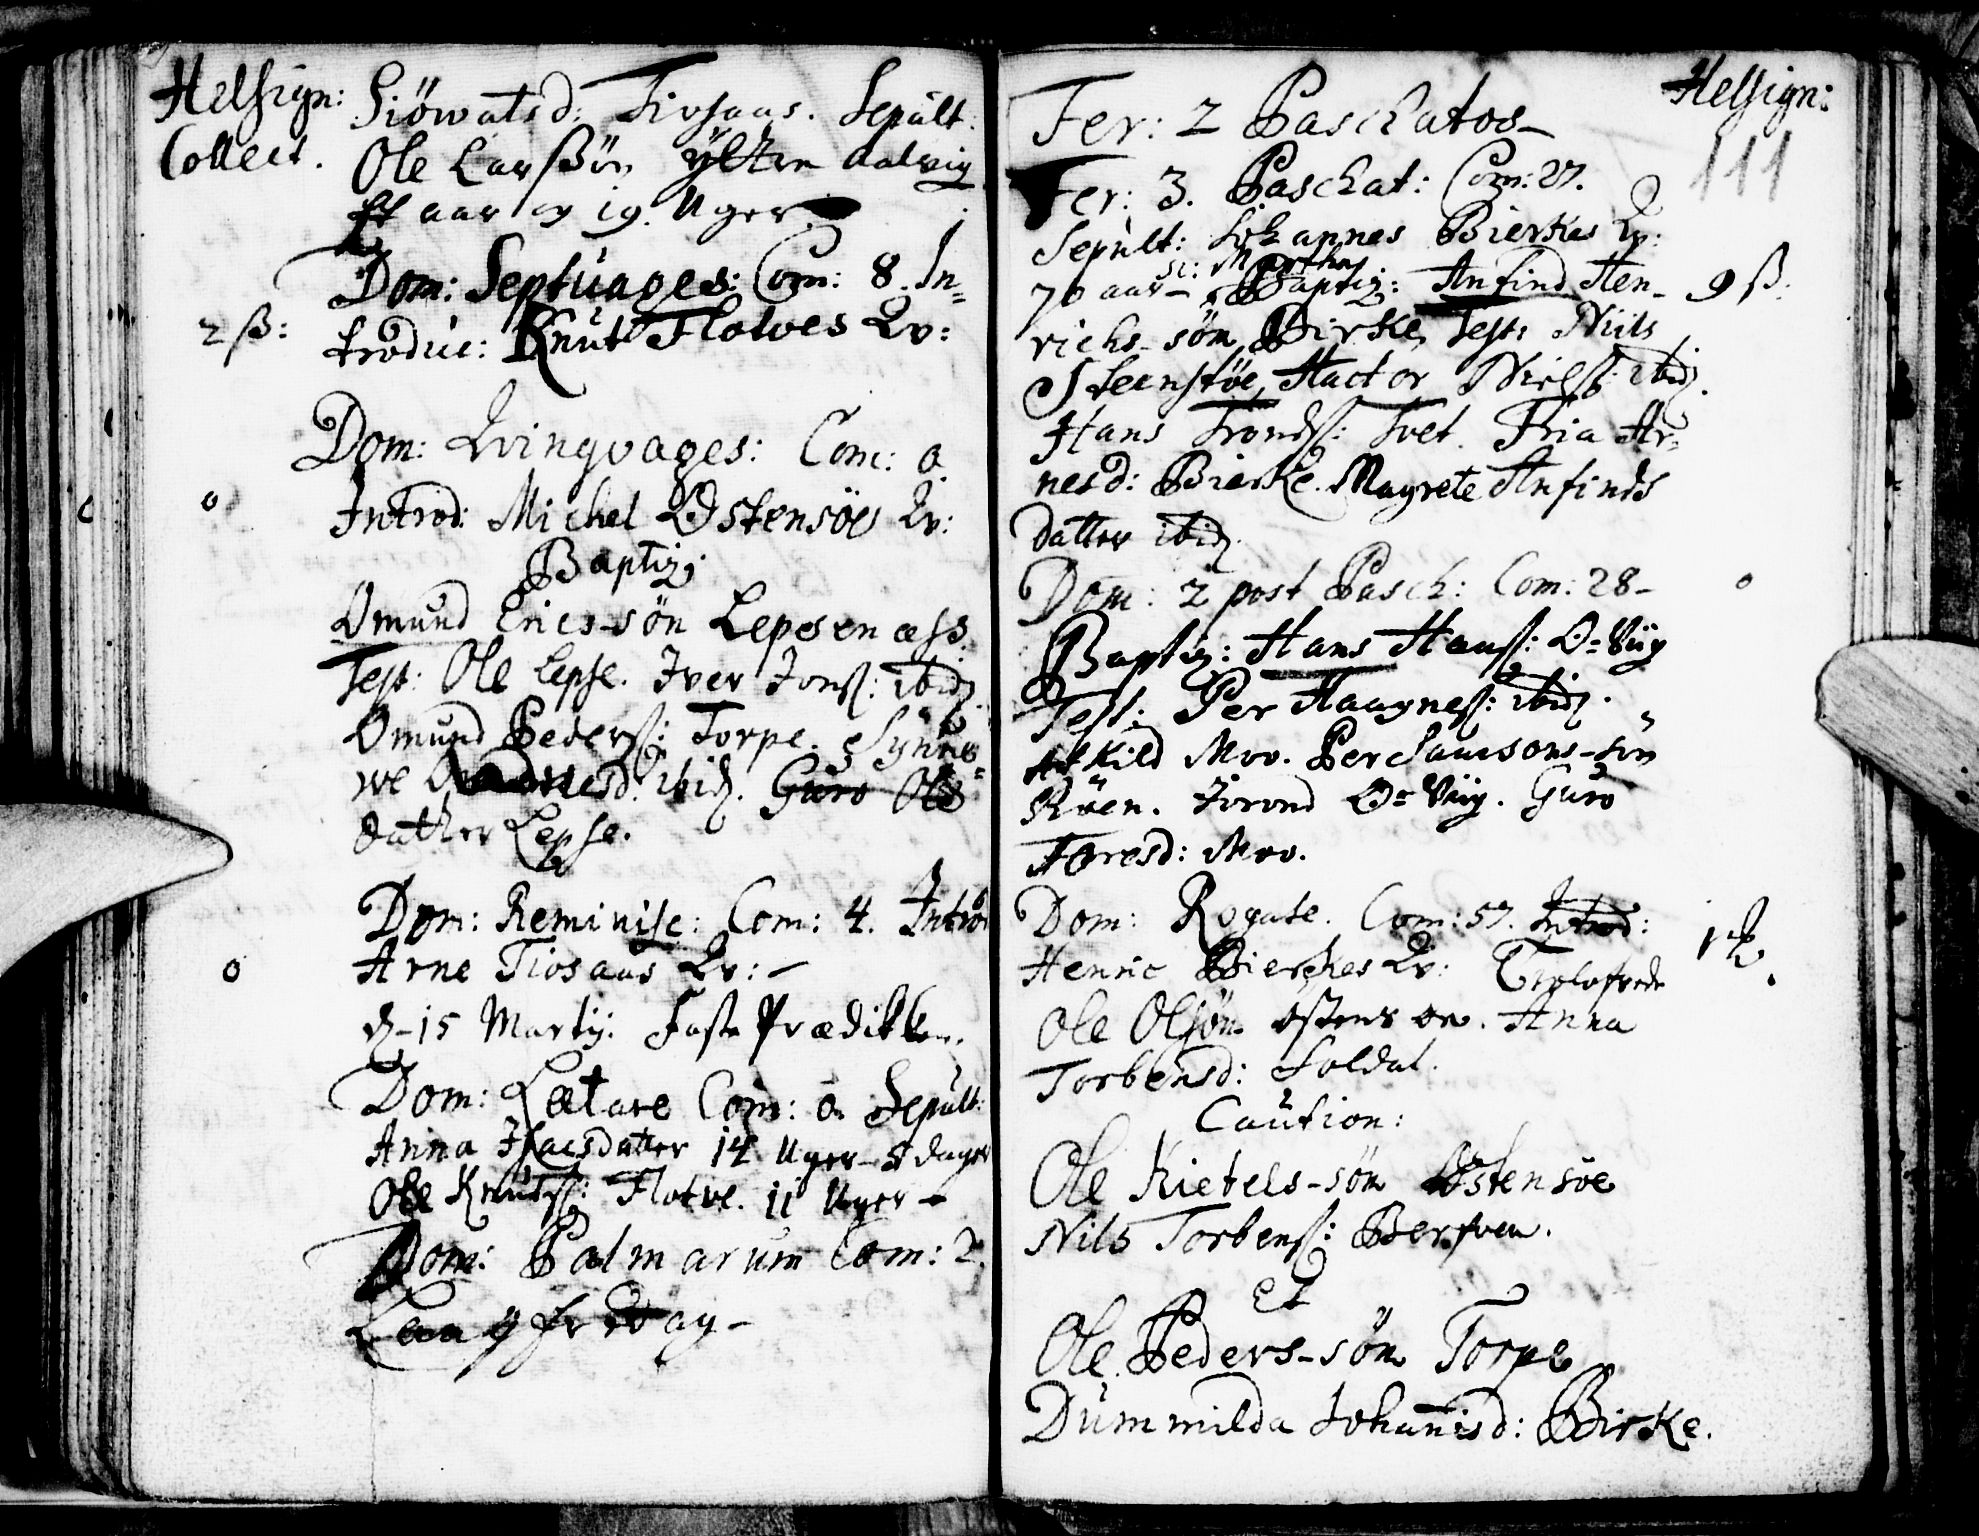 Helsign: Siöwatsd: Tiosaas. Sepult.
Collect. Ole Larssön ytste aalvig
aar og 19. Uger
Dom: Septuages: Com: 8. In=
2 ß: troduc: Knut Flotves Qv:
Dom: Qvinqvages: Com: 0
0 Introd: Michel Østensöe Qv:
Baptiz:
Omund Erics-sön Lepsenæss.
Test: Ole Lepse. Iver Jonss: ibid.
Omund Pederss: Torpe. Synne=
we ibid. Guro Ols
datter Lepse.
Dom: Reminisc: Com: 4. Introd
0 Arne Tiosaas Qv: -
d-15 Martij. Faste Prædikken.
Dom: Lætare Com: 0. Sepult:
Anna Isacsdatter 14 Uger - 5 dager
Ole Knutss: Flotve. 11 Uger -
Dom: Palmarum Com: 2.
Langfredag -
Helsign:
111
Fer: 2 Paschatos -
Fer: 3. Paschat: Com: 27.
Sepult: Johannes Bierkes Qv:
sc: Martha
70 aar - Baptiz: Anfind Hen- 9 ß:
richs-sön Birke, Test: Niils
Steenstöe, Hactor Nielss: ibid.
Hans Trondss: Tvet. Fria Ar=
nesd: Bierke. Magrete Anfinds
datter ibid.
Dom: 2 post Pasch: Com: 28 - 0
Baptiz: Hans Hanss: O= Viig
Test: Per Haagness: ibid.
Askild Moo. Per Samsons-sön
Röen. Jorond O= Viig. Guro
Toresd: Moo.
Dom: Rogate. Com: 57. Introd:
Henric Bierckes Qv: Trolofvede
Ole Olsön östensöe. Anna
Torbensd: Soldal.
Caution:
Ole Kietels-sön Østensöe
Nils Torbenss: Berven.
et
Ole Peders-sön Torpe
Dummilda Johannisd: Birke.